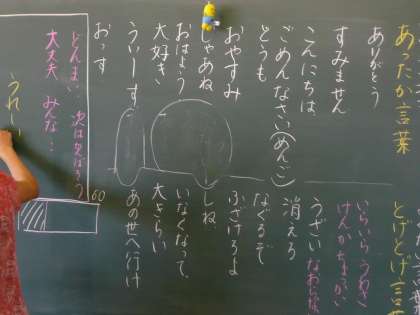 あったか言葉
ありがとう
すみません
こんにちは
ごめんなさい(めんご)
どうも
おやすみ
じゃあね
おはよう
大好き
ういーす
おっす
どんまい…次はがんばろう
大丈夫 みんな…
うれしい
60
とげとげ言葉
いらいら うわさ
けんか
うざい
消えろ
なぐるぞ
ふざけろよ
しね
いなくなって
大きらい
あの世へ行け